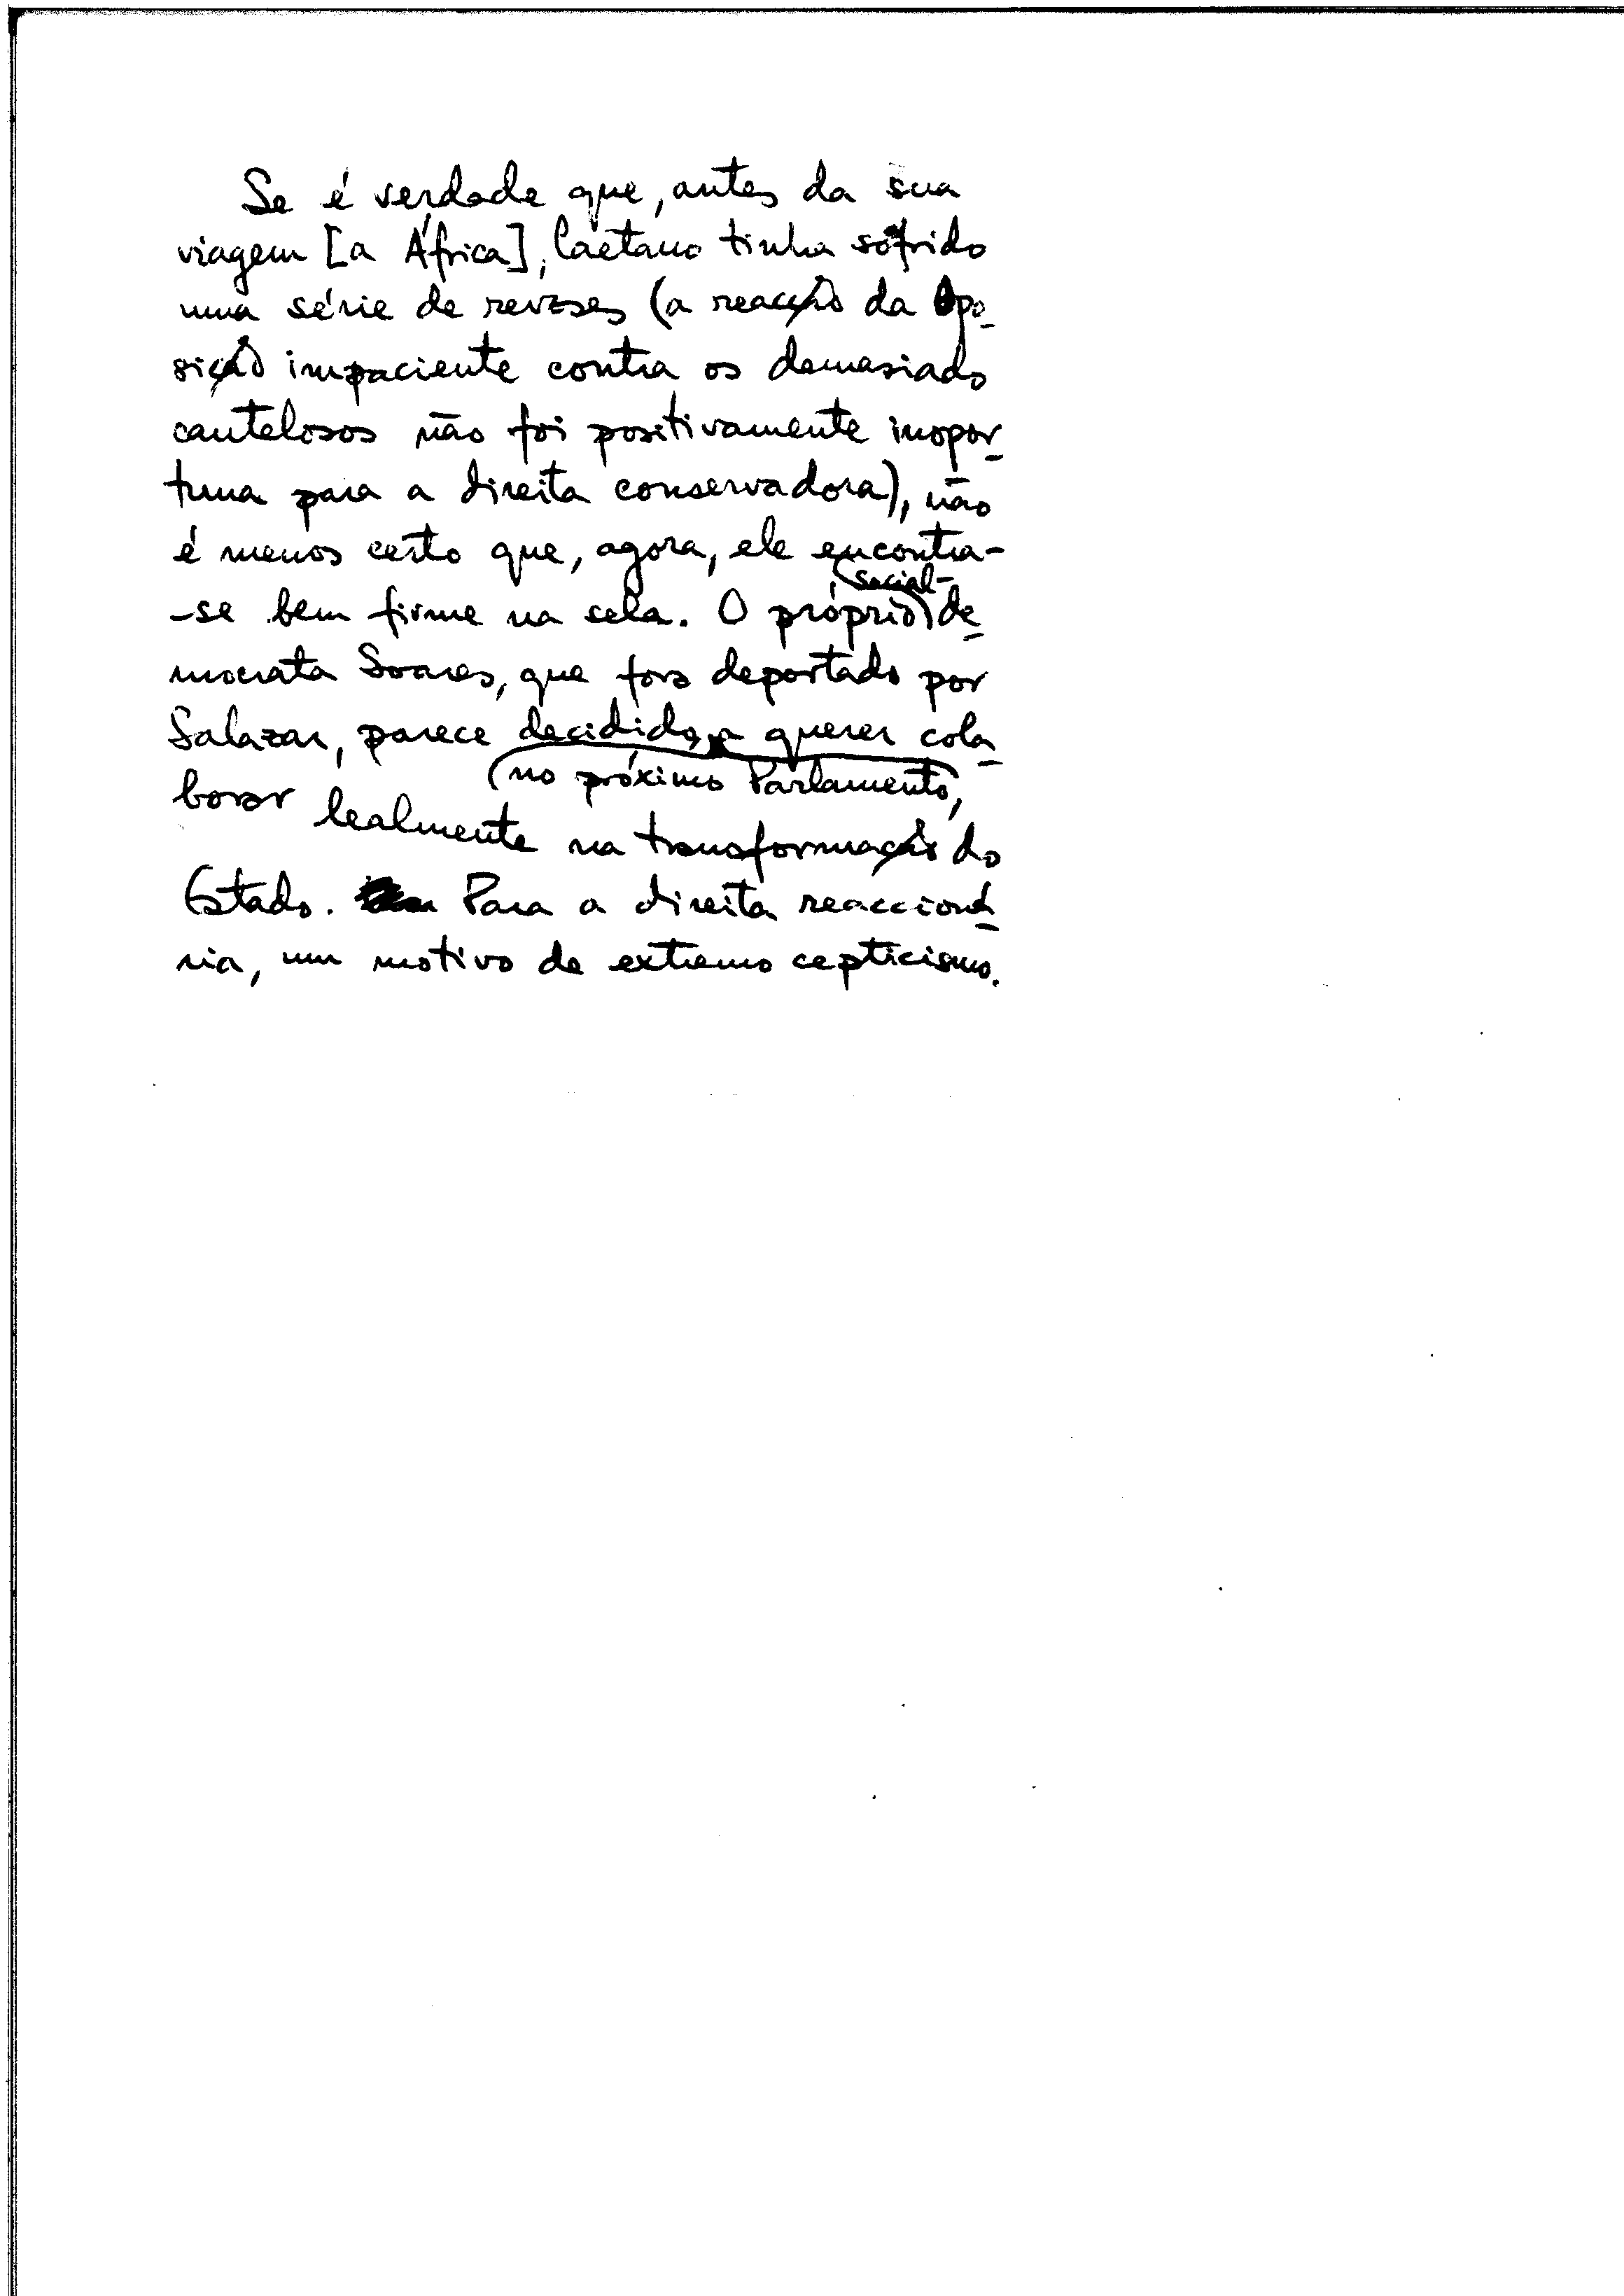 Se é verdade que, antes da sua
viagem [a África], Caetano tinha sofrido
uma série de revezes (a reacção da Opo-
sição impaciente contra os demasiado
cautelosos não foi positivamente inopor-
tuna para a direita conservadora), não
é menos certo que, agora, ele encontra-
-se bem firme na sela. O próprio social-de-
mocrata Soares, que fora deportado por
Salazar, parece decidido, a querer cola-
borar (no próximo Parlamento,
lealmente na transformação do
Estado. Para a direita reaccioná-
ria, um motivo de extremo cepticismo.